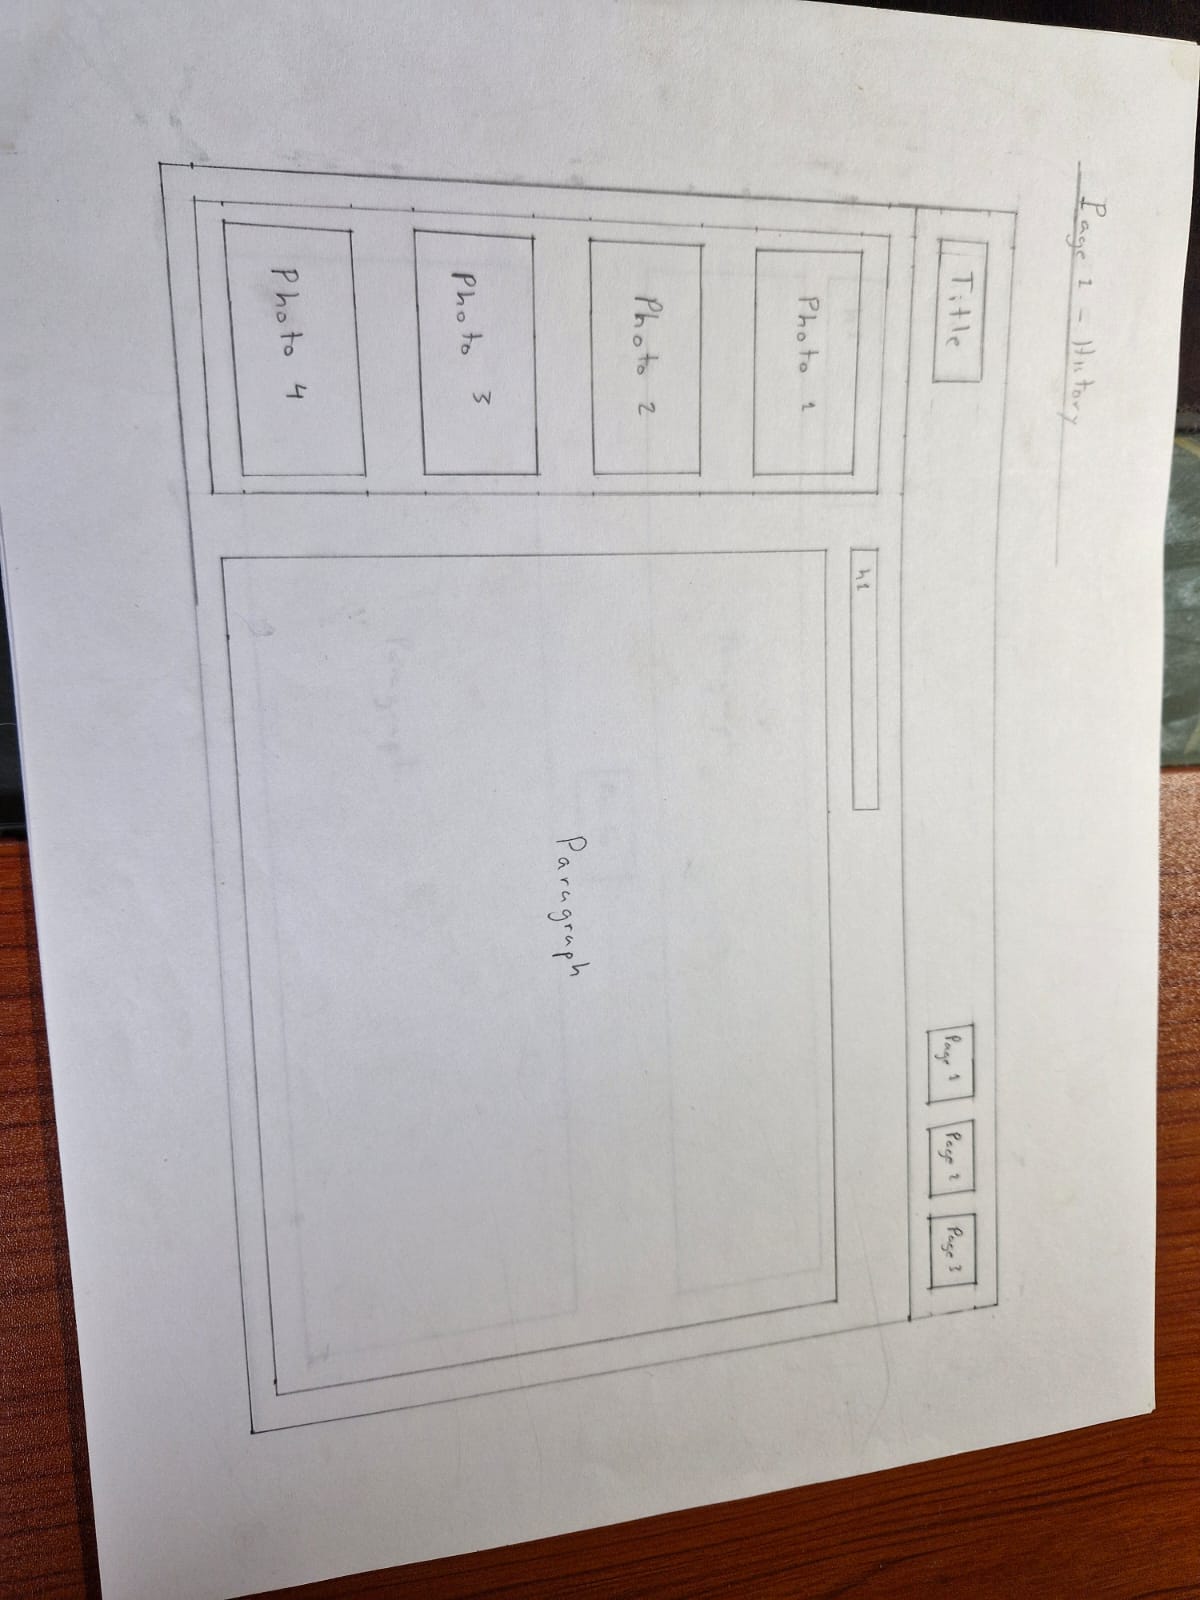 Page 1 - History
Title
Page 1
Page 2
Page 3
h1
Photo 1
Photo 2
Photo 3
Photo 4
Paragraph